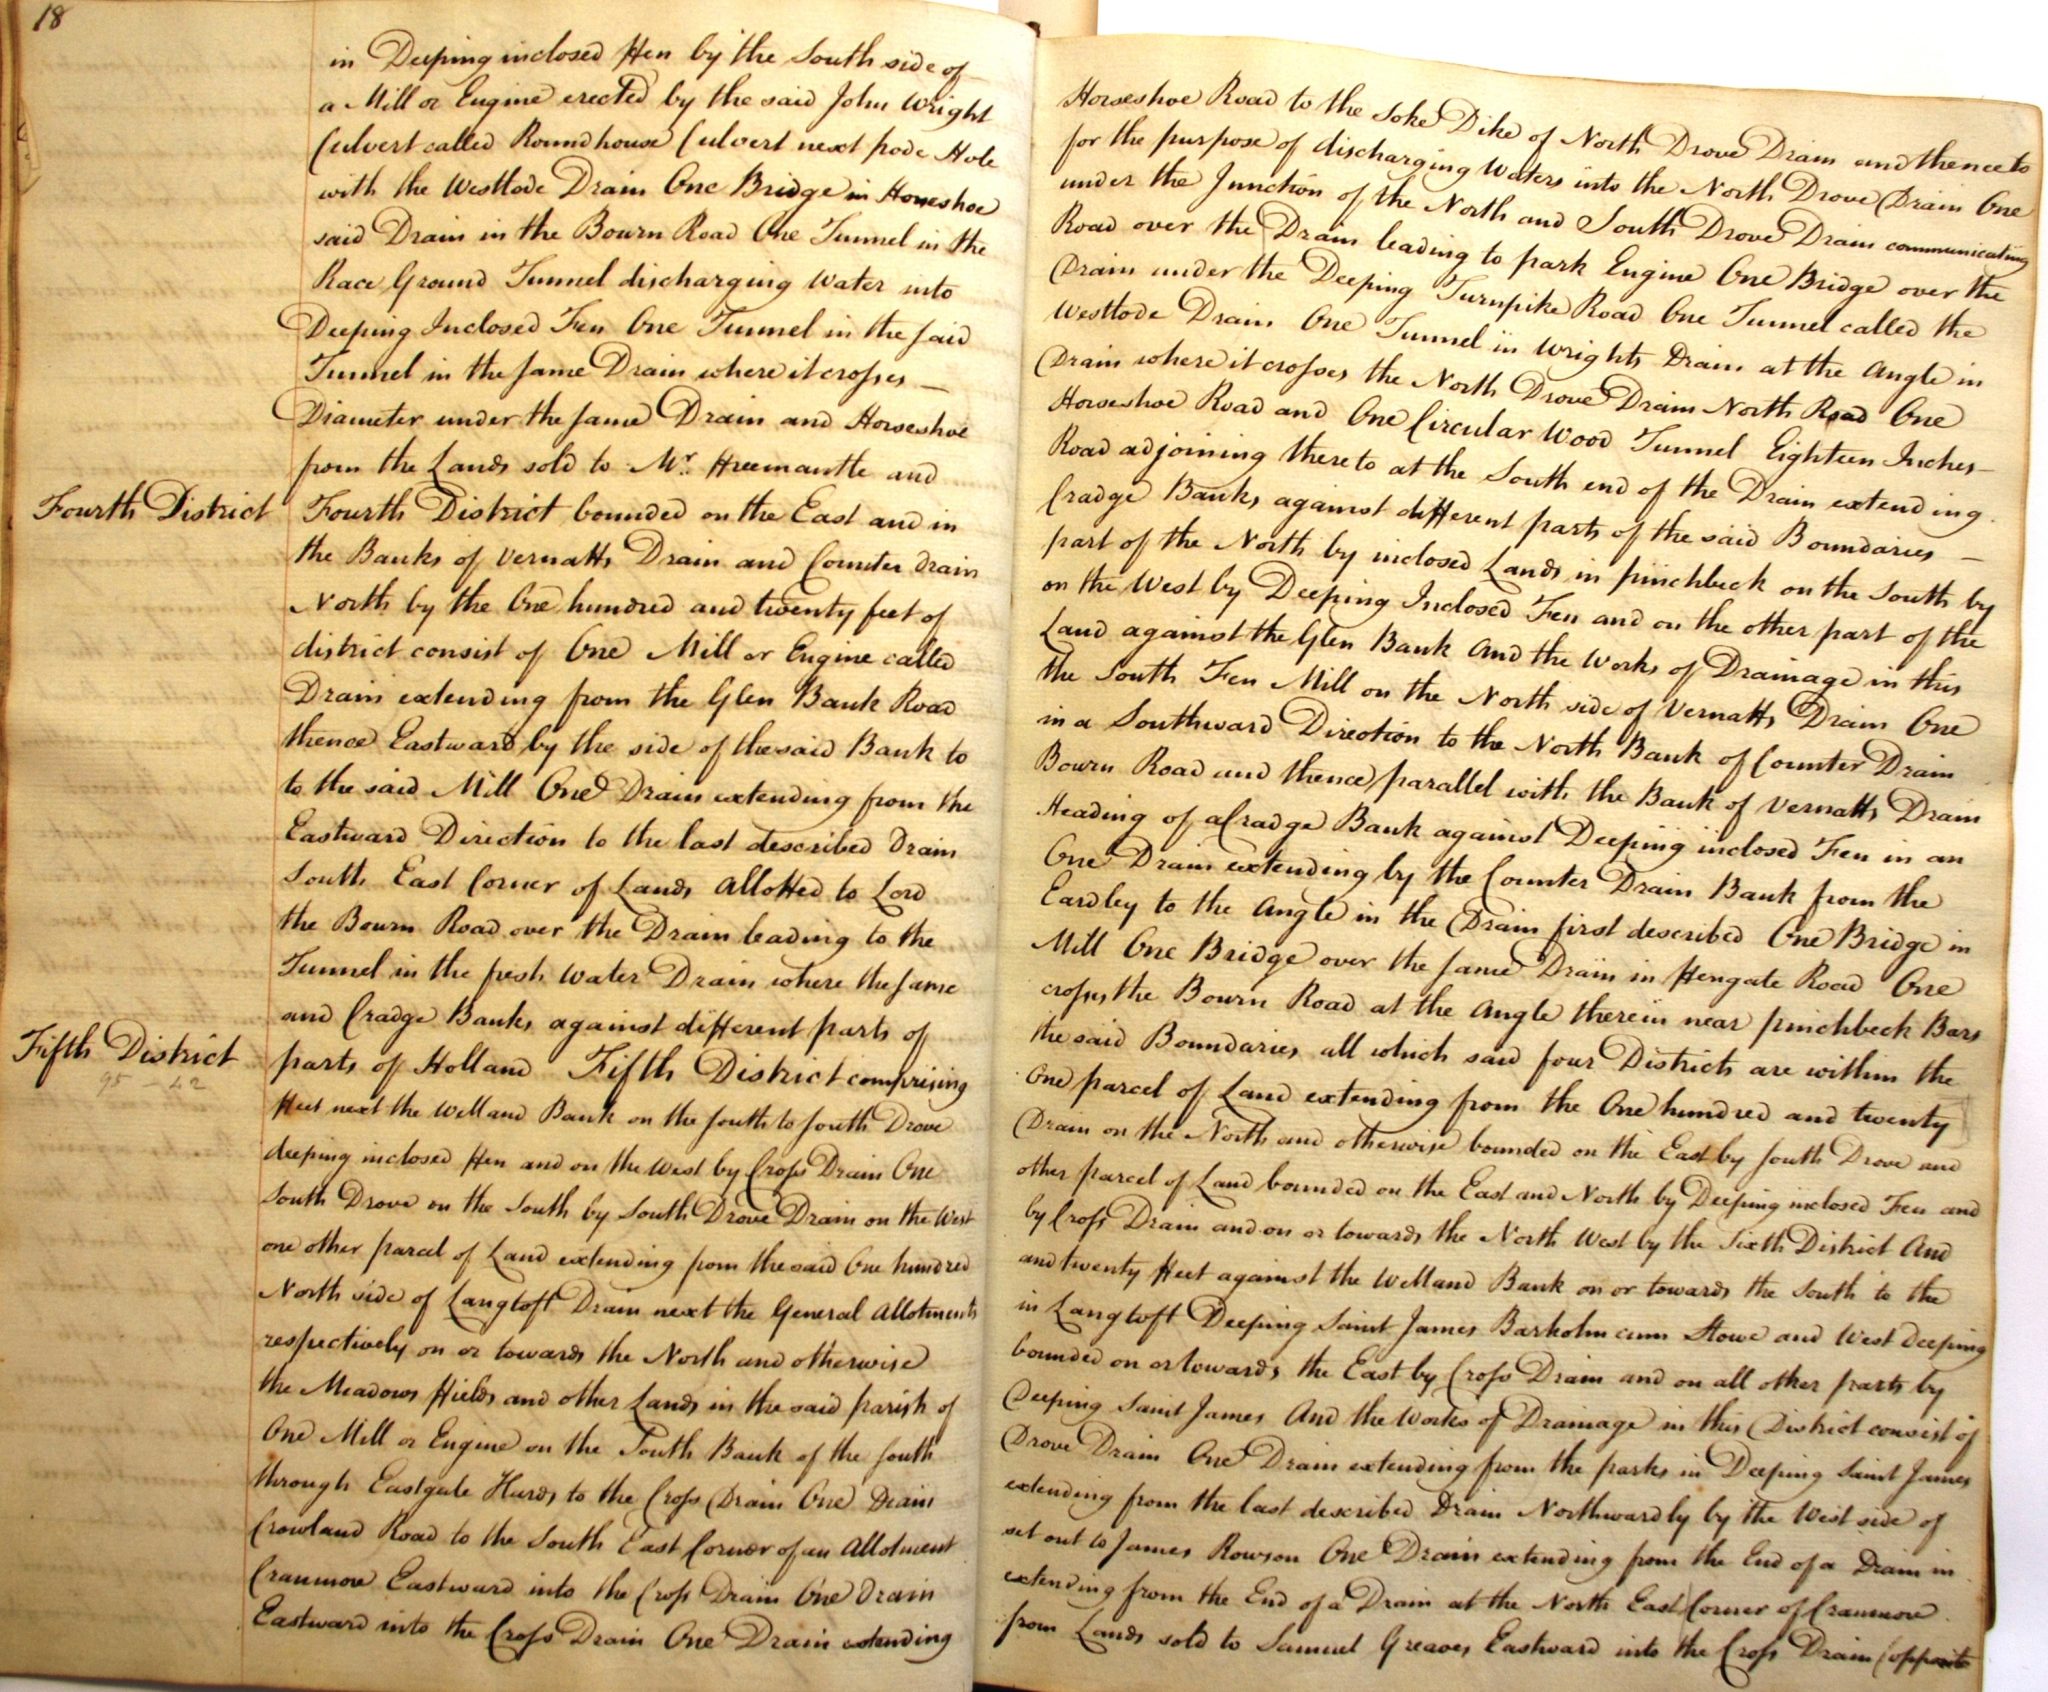 18
in Deeping inclosed Fen by the South side of Horseshoe Road to the Soke Dike of North Drove Drain and thence to
a Mill or Engine erected by the said John Wright for the purpose of discharging Waters into the North Drove Drain One
Culvert called Roundhouse Culvert next pode Hole under the Junction of the North and South Drove Drain communicating
with the Westlode Drain One Bridge in Horseshoe Road over the Drain leading to park Engine One Bridge over the
said Drain in the Bourn Road One Tunnel in the Drain under the Deeping Turnpike Road One Tunnel called the
Race Ground Tunnel discharging Water into Westlode Drain One Tunnel in Wrights Drain at the Angle in
Deeping Inclosed Fen One Tunnel in the said Drain where it crosses the North Drove Drain North Road One
Tunnel in the same Drain where it crosses Horseshoe Road and One Circular Wood Tunnel Eighteen Inches
Diameter under the same Drain and Horseshoe Road adjoining thereto at the South end of the Drain extending
from the Lands sold to Mr. Freemantle and Cradge Banks against different parts of the said Boundaries
Fourth District Fourth District bounded on the East and in part of the North by inclosed Lands in pinchbeck on the South by
the Banks of Vernatts Drain and Counter drain on the West by Deeping Inclosed Fen and on the other part of the
North by the One hundred and twenty feet of Land against the Glen Bank And the Works of Drainage in this
district consist of One Mill or Engine called the South Fen Mill on the North side of Vernatts Drain One
Drain extending from the Glen Bank Road in a Southward Direction to the North Bank of Counter Drain
thence Eastward by the side of the said Bank to Bourn Road and thence parallel with the Bank of Vernatts Drain
to the said Mill One Drain extending from the Heading of a Cradge Bank against Deeping inclosed Fen in an
Eastward Direction to the last described Drain One Drain extending by the Counter Drain Bank from the
South East Corner of Lands Allotted to Lord Eardley to the Angle in the Drain first described One Bridge in
the Bourn Road over the Drain leading to the Mill One Bridge over the same Drain in Hengate Road One
Tunnel in the fresh Water Drain where the same crosses the Bourn Road at the Angle therein near pinchbeck Bars
and Cradge Banks against different parts of the said Boundaries all which said four Districts are within the
Fifth District parts of Holland Fifth District comprising One parcel of Land extending from the One hundred and twenty
95 – 42
Feet next the Welland Bank on the South to South Drove Drain on the North and otherwise bounded on the East by South Drove and
deeping inclosed Fen and on the West by Cross Drain One other parcel of Land bounded on the East and North by Deeping inclosed Fen and
South Drove on the South by South Drove Drain on the West by Cross Drain and on or towards the North West by the Sixth District And
one other parcel of Land extending from the said One hundred and twenty Feet against the Welland Bank on or towards the South to the
North side of Langtoft Drain next the General Allotments in Langtoft Deeping Saint James Barholm cum Stowe and West Deeping
respectively on or towards the North and otherwise bounded on or towards the East by Cross Drain and on all other parts by
the Meadows Fields and other Lands in the said parish of Deeping Saint James And the Works of Drainage in this District consist of
One Mill or Engine on the South Bank of the South Drove Drain One Drain extending from the parks in Deeping Saint James
through Eastgate Hards to the Cross Drain One Drain extending from the last described Drain Northwardly by the West side of
Crowland Road to the South East Corner of an Allotment set out to James Rowson One Drain extending from the End of a Drain in
Cranmore Eastward into the Cross Drain One Drain extending from the End of a Drain at the North East Corner of Cranmore
Eastward into the Cross Drain One Drain extending from Lands sold to Samuel Greaves Eastward into the Cross Drain (opposite